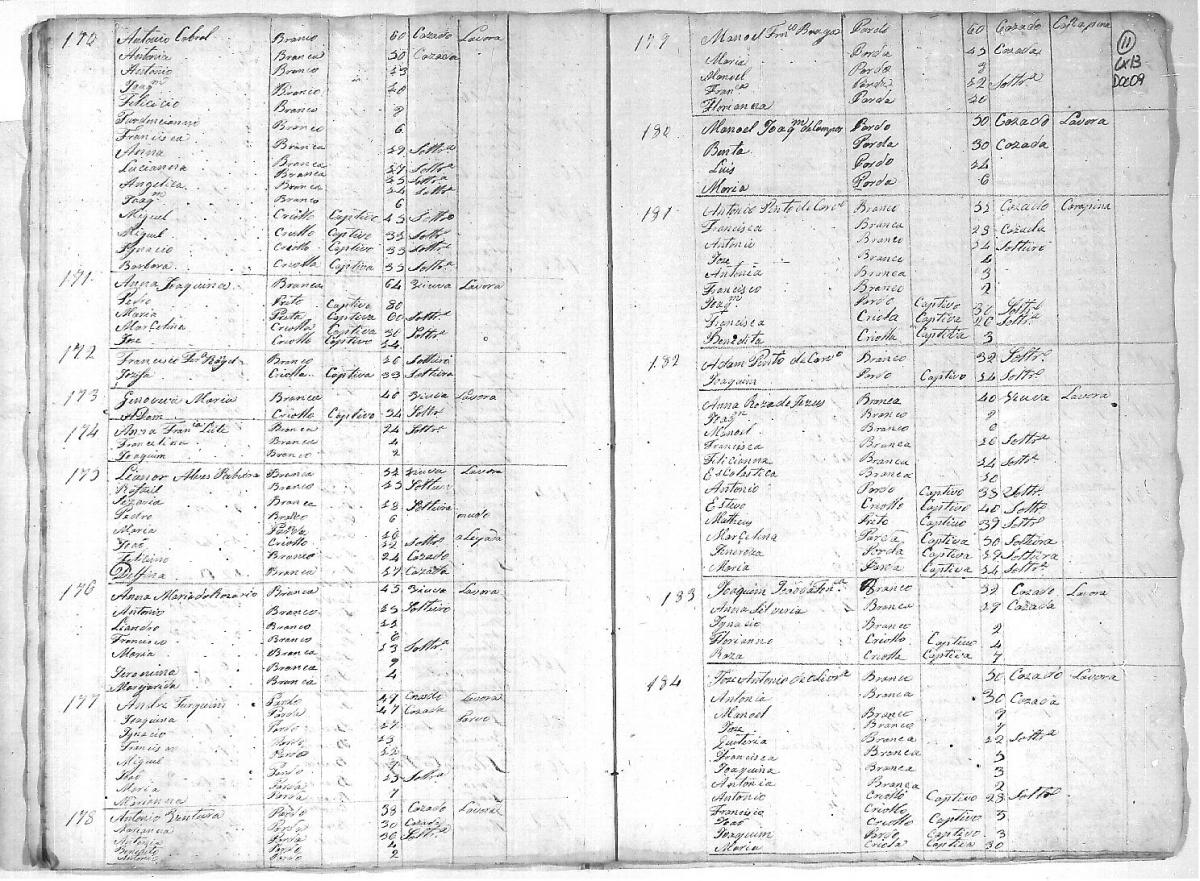 170 Antonio Cabral Branco 60 Cazado Lavora
Antonia Branca 50 Cazada
Antonio Branco 23
Joaqm Branco 20
Feliçicio Branco 9
Branco 6
Francisca Branca
Anna Branca 29 Soltra
Lucianna Branca 27 Soltra
Angelica Branca 24 Soltra
Joaqm Branco 6
Miguel Criollo Captivo 45 Solto
Miguel Criollo Captivo 35 Soltro
Ignacio Criollo Captivo 33 Soltro
Barbora Criolla Captiva 35 Soltra
171 Anna Joaquina Branca 64 Viuva Lavora
Pedro Preto Captivo 80
Maria Preta Captiva 60 Soltra
Marcelina Criolla Captiva 30 Soltra
Joze Criollo Captivo 14
172 Francisco Branco 26 Solteiro
Jozefa Criolla Captiva 33 Solteira
173 Genoveva Maria Branca 40 Viuva Lavora
Adam Criollo Captivo 24 Soltro
174 Anna Franca Leite Branca 24 Soltra
Francelina Branca 4
Joaquim Branco 2
175 Lianor Alves Branca 52 Viuva Lavora
Rofael Branco 23 Solteiro
Branca 18 Solteira
Pedro Branco 6
Maria Parda 16 mudo
Joaõ Criollo 22 Solto aLeijado
Feliciano Branco 24 Cazado
Delfina Branca 17 Cazada
176 Anna Maria do Rozario Branca 45 Viuva Lavora
Antonio Branco 25 Solteiro
Liandro Branco 22
Francisco Branco 6
Maria Branca 13 Soltra
Jeronima Branca 9
Margarida Branca 4
177 Andre Furquim Pardo 49 Cazado Lavora
Joaquina Parda 47 Cazada
Ignacio Pardo 27
Francisco Pardo 23
Miguel Pardo 22
Joaõ Pardo 9
Maria Parda 23 Soltra
Marianna Parda 7
178 Antonio Ventura Pardo 38 Cazado Lavora
Marianna Parda 30 Cazada
Antonia Parda 4
Benedito Pardo
Antonio Pardo 2
179 Manoel Frnco Braga Pardo 60 Cazado Carapina
Maria Parda 45 Cazada
Manoel Pardo 9
Franca Parda 22 Soltra
Florianna Parda 20
11
CX13
DOC09
180 Manoel Joaqm de Campos Pardo 50 Cazado Lavora
Benta Parda 30 Cazada
Luis Pardo 24
Maria Parda 6
181 Antonio Pinto de Carvo Branco 32 Cazado Carapina
Francisca Branca 28 Cazada
Antonio Branco 14 Solteiro
Joze Branco 4
Antonia Branca 3
Francisco Branco 2
Joaqm Pardo Captivo Solto
Francisca Criola Captiva 26 Soltra
Benedita Criolla Captiva 3
182 Adam Pinto de Carvo Branco 32 Soltro
Joaquim Pardo Captivo 14 Soltro
Anna Roza de Jezus Branca 40 Viuva Lavora
Joaqm Branco 9
Manoel Branco 6
Francisca Branca 20 Soltra
Filicianna Branca 14 Soltra
Escolastica Branca 10
Antonio Pardo Captivo 38 Soltro
Estevo Criollo Captivo 40 Soltro
Matheus Preto Captivo 39 Soltro
Marcelina Parda Captiva 30 Solteira
Generoza Parda Captiva 19 Solteira
Maria Parda Captiva 14 Soltra
183 Joaquim Branco 32 Cazado Lavora
Anna Silveria Branca 29 Cazada
Ignacio Branco 2
Florianno Criollo Captivo 4
Roza Criolla Captiva 7
184 Joze Antonio de Olivra Branco 50 Cazado Lavora
Antonia Branca 30 Cazada
Manoel Branco 9
Joze Branco 7
Quiteria Branca 22 Soltra
Francisca Branca 5
Joaquina Branca 3
Antonia Branca 2
Antonio Criollo Captivo 23 Solto
Francisco Criollo Captivo 5
Joaõ Criollo Captivo
Joaquim Pardo Captivo 3
Maria Criola Captiva 30